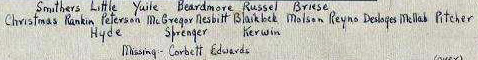 Smithers Little Yuile Beardmore Russel Briese
Christmas Rankin Peterson McGregor Nesbitt Blaikbek Molson Reyno Desloges McNab Pitcher
Hyde Sprenger Kerwin
Missing - Corbett Edwards
(over)